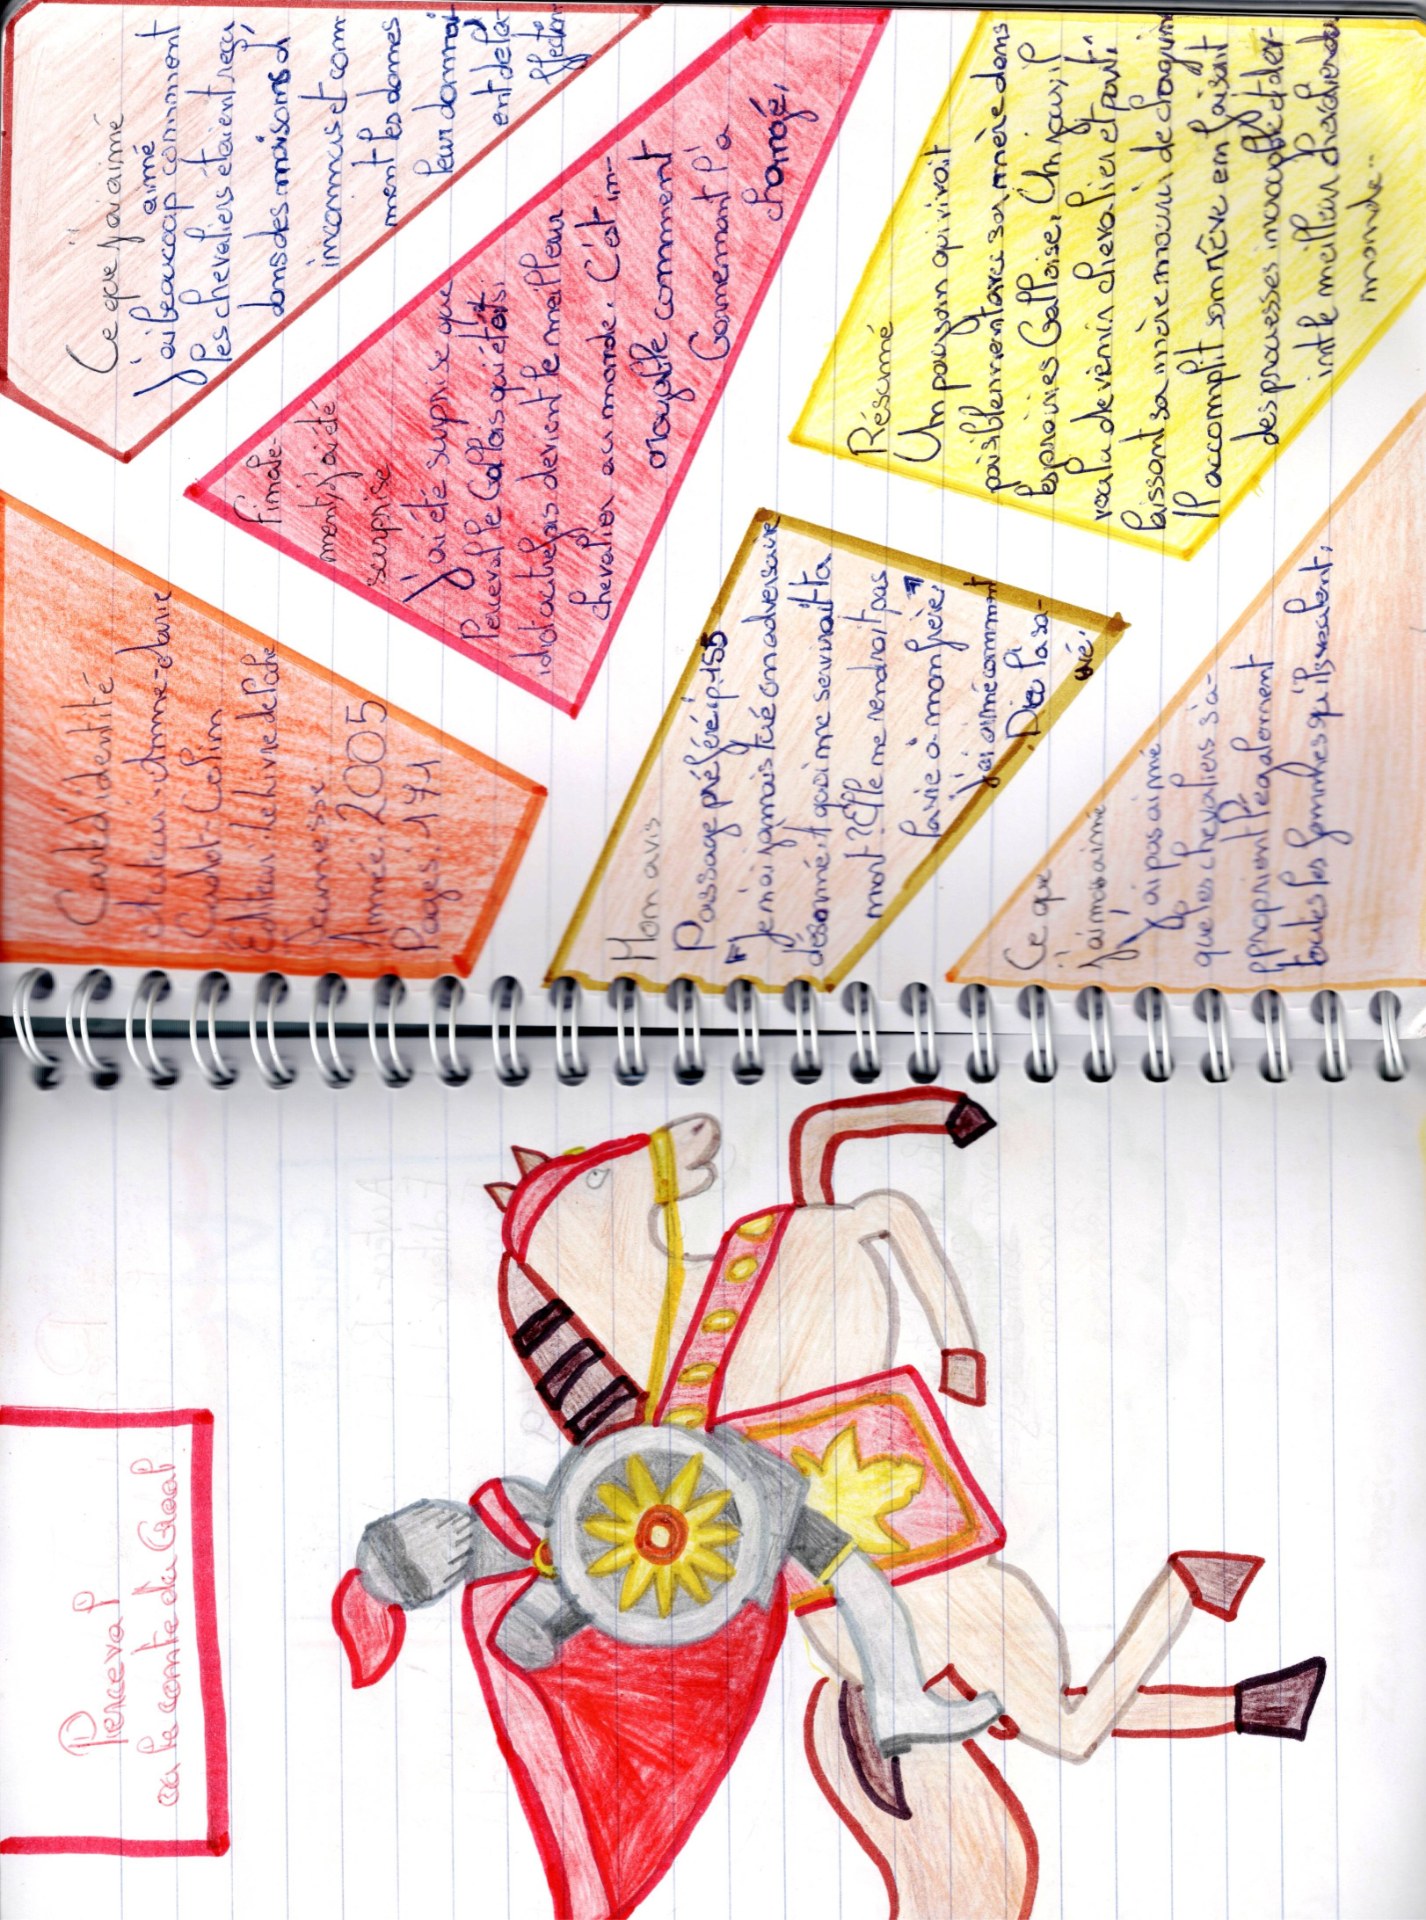 Perceval
ou le conte du Graal
Carte d'identité
Auteur: Anne-Marie
Cadot-Colin
Editeur: Le Livre de Poche
Jeunesse
Année: 2005
Pages: 171
Ce que j'ai aimé
aimé
J'ai beaucoup comment
les chevaliers étaient reçu
dans des maisons d'
inconnus et com
ment les dames
leur donnai
ent de l'a-
ffection
Finale-
ment j'ai été
surprise
J'ai été surprise que
Perceval le Gallois qui était
idiot autrefois devient le meilleur
chevalier au monde. C'est in-
croyable comment
Gornemant l'a
changé.
Mon avis
Passage préféré: p.155
"Je n'ai jamais tué on adversaire
désarmé, t quoi me servirait ta
mort? Elle ne rendrait pas
la vie à mon frère."
J'ai aimé comment
Dieu l'a sa-
uvé.
Résumé
Un paysan qui vivait
paisiblement avec sa mère dans
les prairies Galloise. Un jour, il
voulu devenir chevalier et part,
laissant sa mère mourir de chagrin
Il accomplit son rêve en faisant
des prouesses incroyable et der-
int le meilleur chevalier du
monde...
Ce que
j'ai moins aimé
J'ai pas aimé
que les chevaliers s'a-
pproprient légalement
toutes les femmes qu'ils veulent.